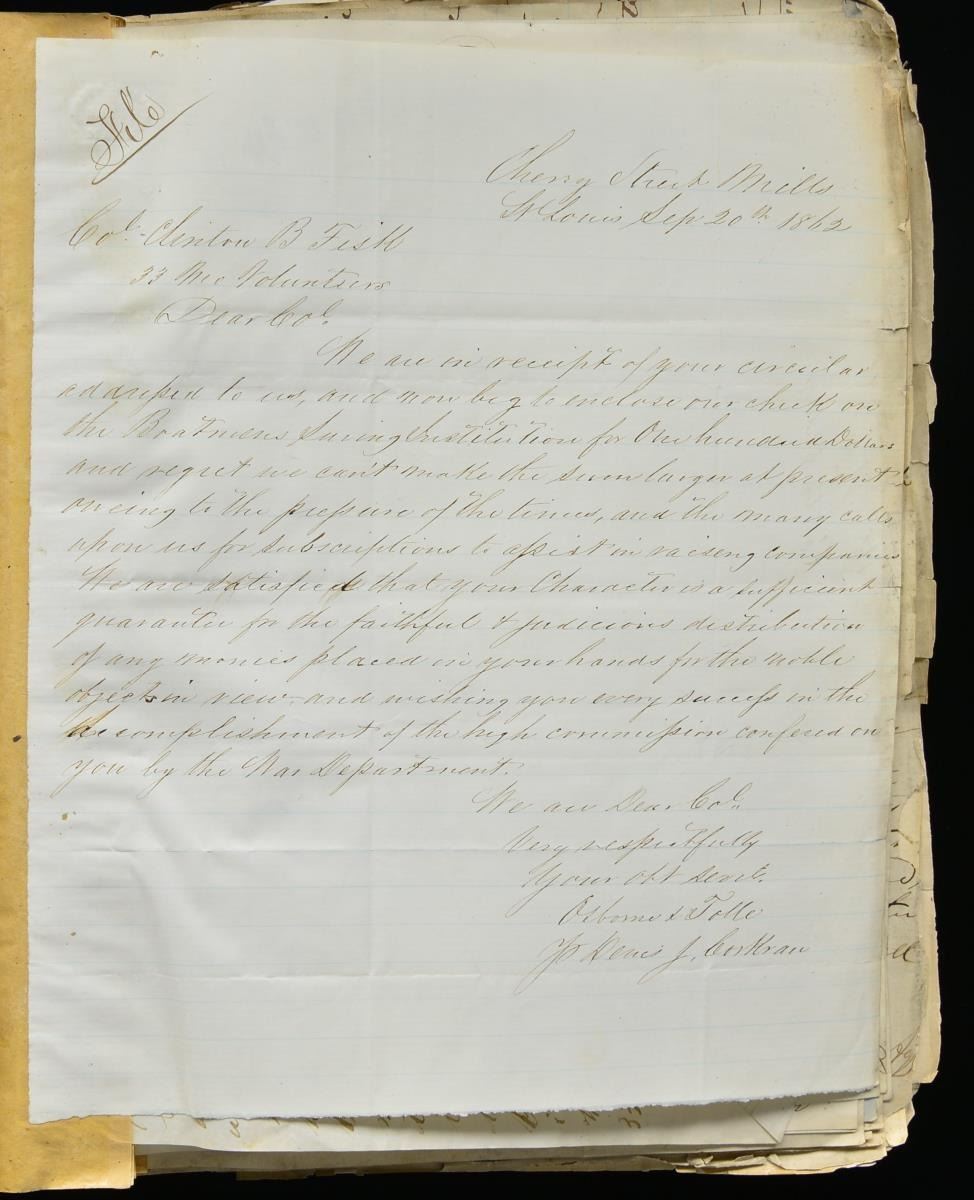 File
Cherry Street Mills
St Louis Sep 20th 1862
Col. Clinton B Fisk
33 Mo Volunteers
Dear Col.
We are in receipt of your circular
addressed to us, and now beg to enclose our check on
the Boatmens Saving Institution for One hundred Dollars
and regret we can't make the sum larger at present
owing to the pressure of the times, and the many calls
upon us for subscriptions to assist in raising companies
We are satisfied that your Character is a sufficient
guarantee for the faithful & judicious distribution
of any monies placed in your hands for the noble
objects in view, and wishing you every success in the
accomplishment of the high commission confered on
you by the War Department.
We are Dear Col.
Very respectfully
Your obt servt.
Osborne & Tolle
Pr Denis J. Corkran